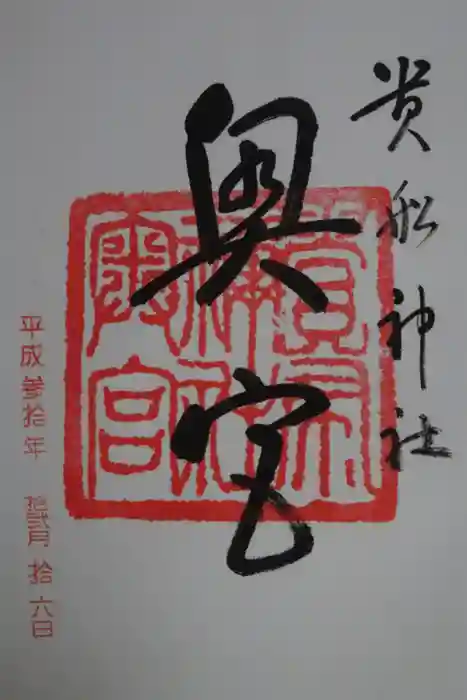 貴船神社
奥宮
貴船
神社
奥宮
平成参拾年 拾弐月拾六日